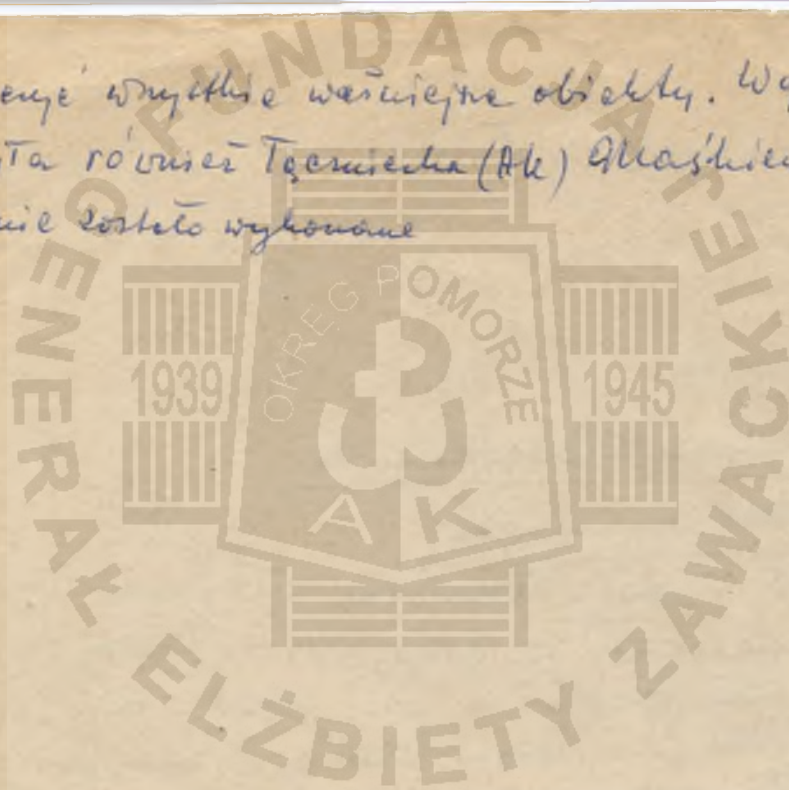 wszystkie ważniejsze obiekty. Wy
ła również Łączniczka (AK)
nie zostało wykonane
FUNDACJA
GENERAŁ ELŻBIETY ZAWACKIEJ
OKRĘG POMORZE
1939
1945
AK